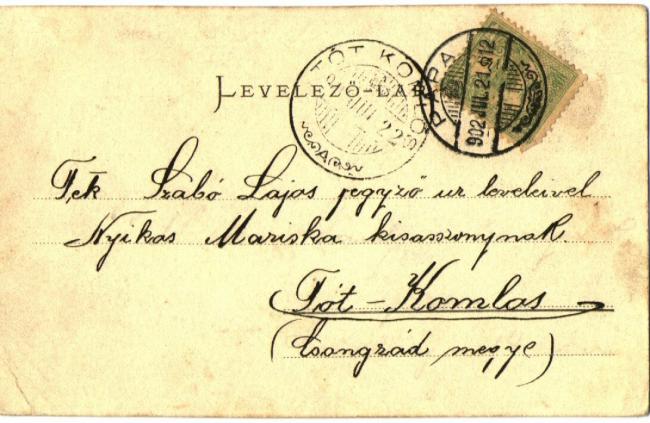 LEVELEZŐ-LAP
TÓT KOMLÓS
22
PÁPA
902 JUL. 21
12
Tek Szabó Lajos jegyző ur leveleivel
Nyikos Mariska kisasszonynak.
Tót-Komlos
(Csongrád megye)